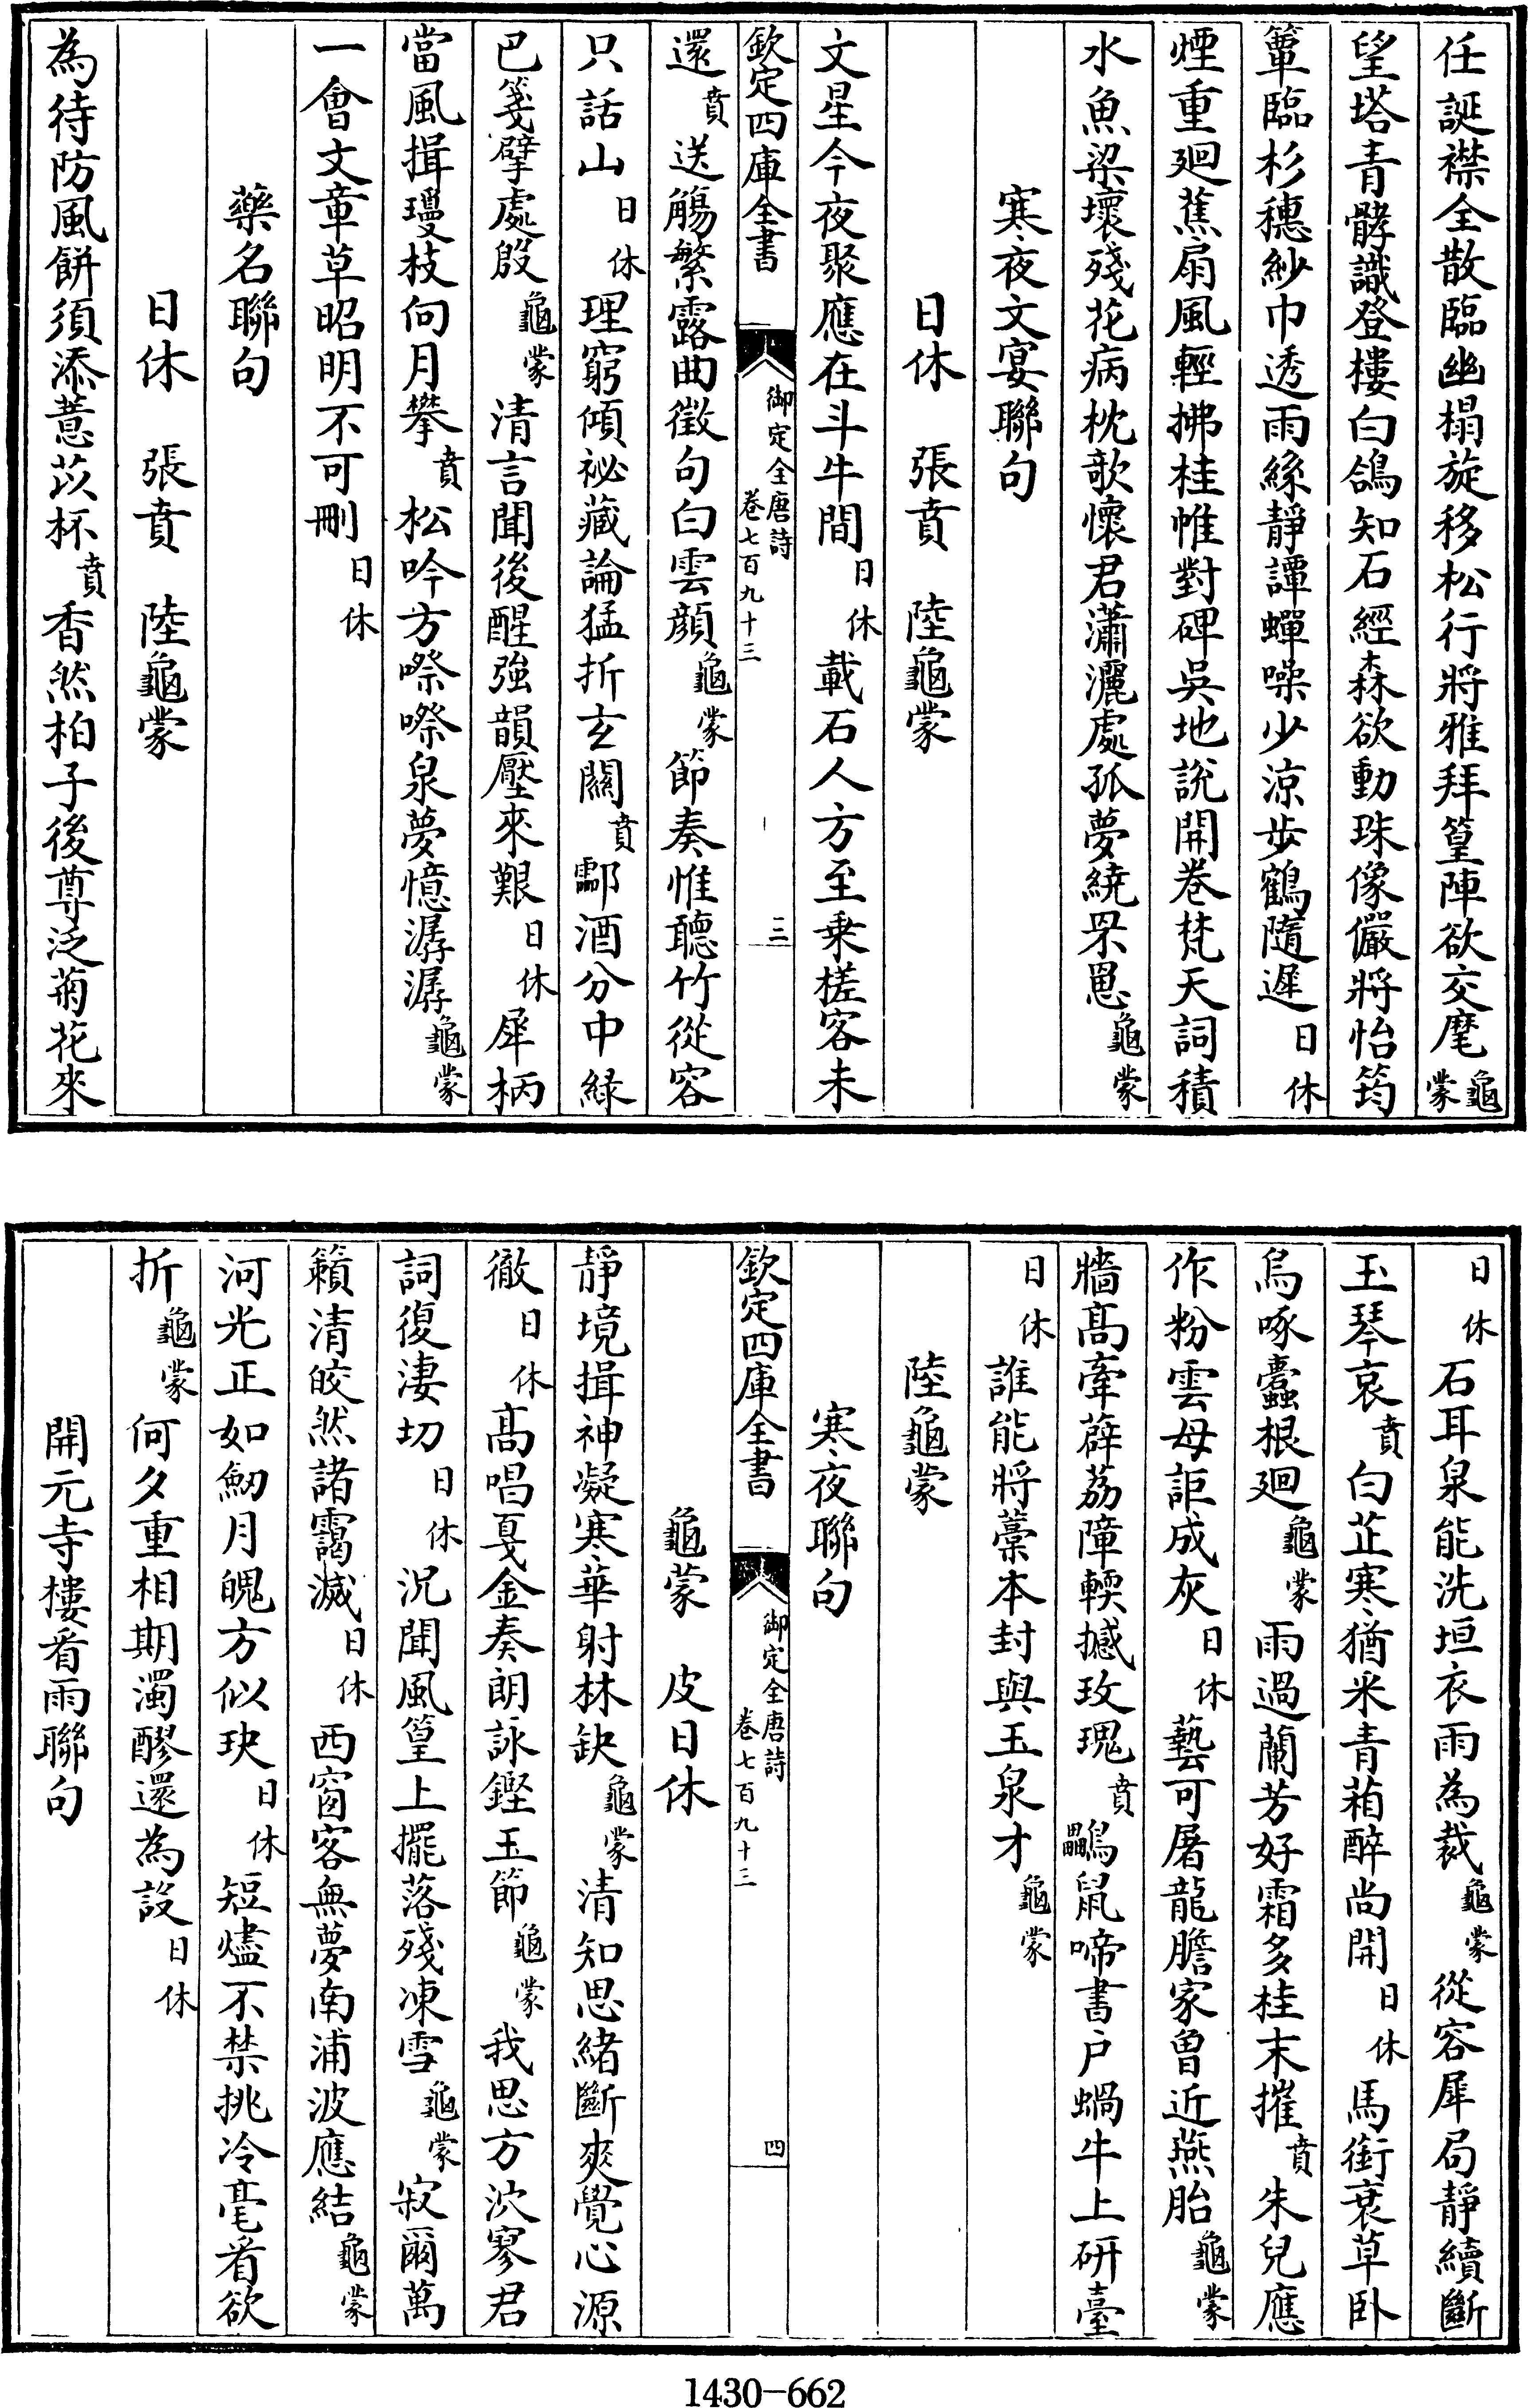 任誕襟全散臨幽榻旋移松行將雅拜篁陣欲交麾龜蒙
望塔青髇識登樓白鴿知石經森欲動珠像儼將怡筠
簟臨杉穗紗巾透雨絲靜譚蟬噪少涼步鶴隨遲日休
煙重迴蕉扇風輕拂桂帷對碑吳地說開卷梵天詞積
水魚梁壞殘花病枕欹懷君瀟灑處孤夢繞罘罳龜蒙
寒夜文宴聯句
日休　張賁　陸龜蒙
文星今夜聚應在斗牛間日休載石人方至乗槎客未
欽定四庫全書　御定全唐詩卷七百九十三　三
還賁送觴繁露曲徵句白雲顔龜蒙節奏惟聽竹從容
只話山日休理窮傾祕藏論猛折玄關賁酃酒分中緑
巴箋擘處殷龜蒙清言聞後醒強韻壓來艱日休犀柄
當風揖瓊枝向月攀賁松吟方㗫㗫泉夢憶潺潺龜蒙
一會文章草昭明不可刪日休
藥名聯句
日休　張賁　陸龜蒙
為待防風餅須添薏苡杯賁香然柏子後尊泛菊花來
日休石耳泉能洗垣衣雨為裁龜蒙從容犀局靜續斷
玉琴哀賁白芷寒猶采青葙醉尚開日休馬銜衰草卧
烏啄蠧根迴龜蒙雨過蘭芳好霜多桂末摧賁朱兒應
作粉雲母詎成灰日休藝可屠龍膽家曽近燕胎龜蒙
牆髙牽薜荔障輭撼玫瑰賁鸓鼠啼書户蝸牛上研臺
日休誰能將藁本封與玉泉才龜蒙
陸龜蒙
寒夜聯句
欽定四庫全書　御定全唐詩卷七百九十三　四
龜蒙　皮日休
靜境揖神凝寒華射林缺龜蒙清知思緒斷爽覺心源
徹日休髙唱戛金奏朗詠鏗玉節龜蒙我思方沇寥君
詞復淒切日休況聞風篁上擺落殘凍雪龜蒙寂爾萬
籟清皎然諸靄滅日休西窗客無夢南浦波應結龜蒙
河光正如劒月魄方似玦日休短燼不禁挑冷毫看欲
折龜蒙何夕重相期濁醪還為設日休
開元寺樓看雨聯句
1430-662